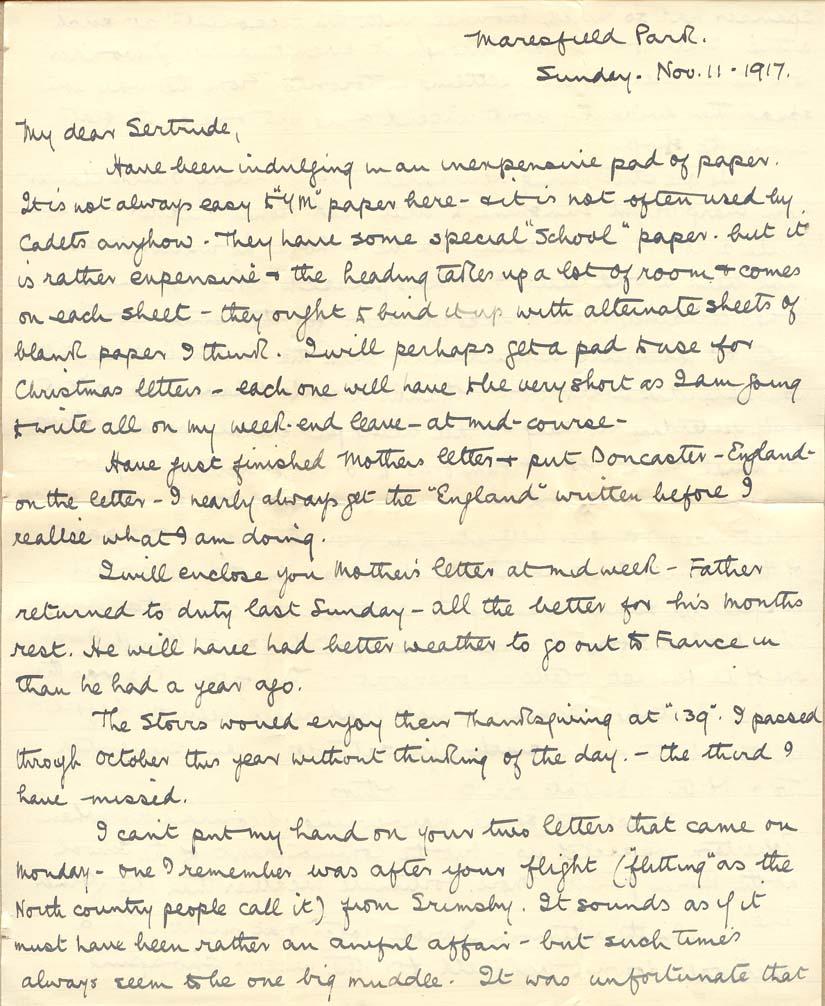 Maresfield Park.
Sunday. Nov. 11 - 1917.
My dear Gertrude,
Have been indulging in an inexpensive pad of paper.
It is not always easy to "YM" paper here - & it is not often used by
Cadets anyhow. They have some special "School" paper. but it
is rather expensive & the heading takes up a lot of room & comes
on each sheet - they ought to bind it up with alternate sheets of
blank paper I think. I will perhaps get a pad to use for
Christmas letters - each one will have to be very short as I am going
to write all on my week-end leave - at mid-course -
Have just finished Mothers letter & put Doncaster - England -
on the letter - I nearly always get the "England" written before I
realise what I am doing.
I will enclose you Mother's letter at midweek - Father
returned to duty last Sunday - all the better for his months
rest. He will have had better weather to go out to France in
than he had a year ago.
The Storrs would enjoy their Thanksgiving at "139". I passed
through October this year without thinking of the day. - the third I
have missed.
I can't put my hand on your two letters that came on
Monday - one I remember was after your flight ("flitting" as the
North country people call it) from Grimsby. It sounds as if it
must have been rather an awful affair - but such times
always seem to be one big muddle. It was unfortunate that